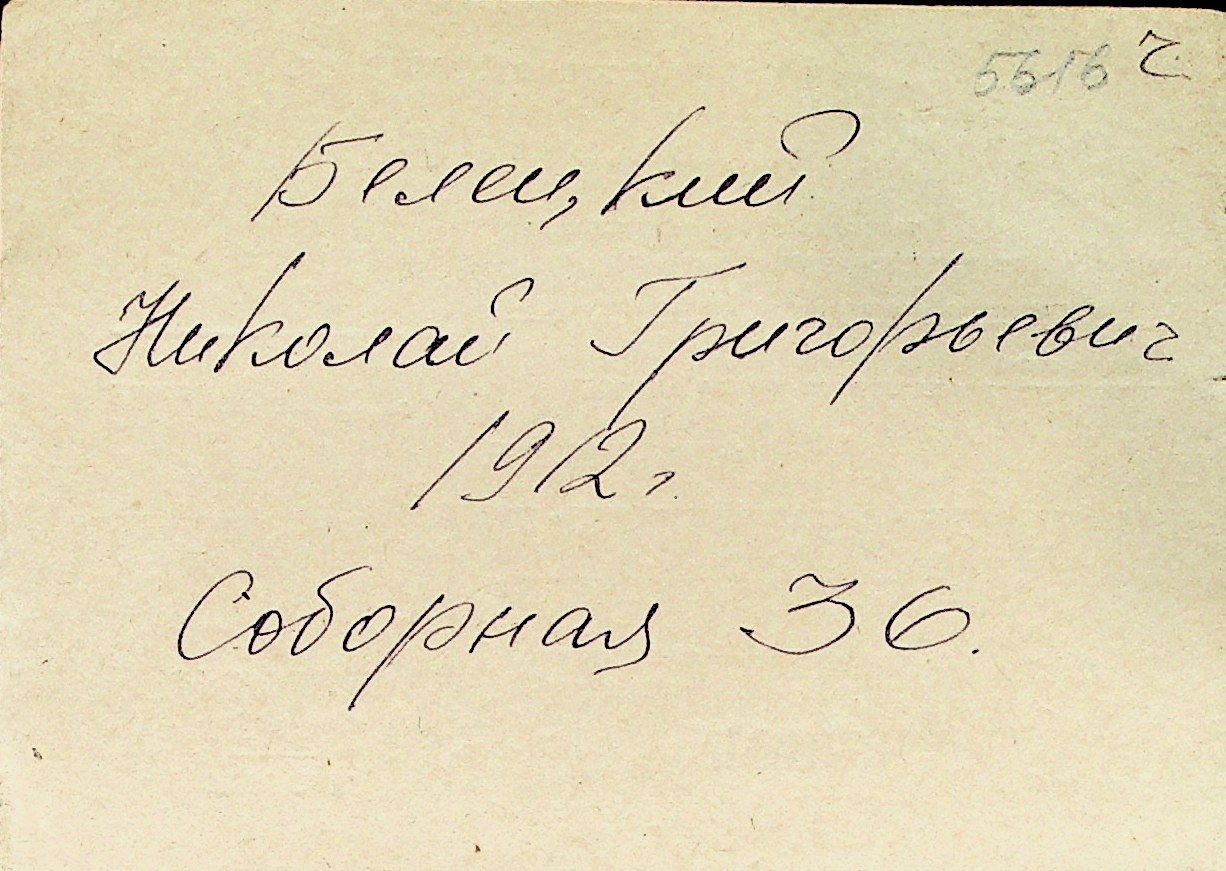 5616 ч
Белецкий
Николай Григорьевич
1912 г.
Соборная 36.